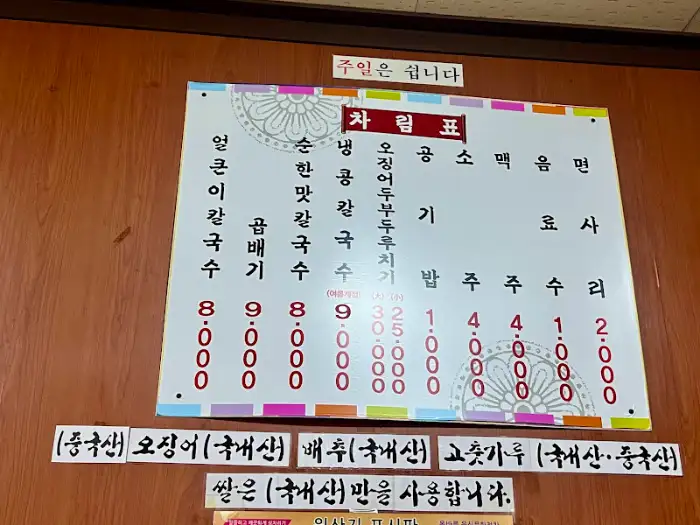 주일은 쉽니다
차림표
얼큰이칼국수 8.000
곱배기 9.000
순한맛칼국수 8.000
냉콩칼국수 (여름계절) 9.000
오징어두부두루치기 (大) 30.000 (小) 25.000
공기밥 1.000
소주 4.000
맥주 4.000
음료수 1.000
면사리 2.000
(중국산) 오징어(국내산) 배추(국내산) 고춧가루 (국내산·중국산)
쌀은 (국내산)만을 사용합니다.
원산지 표시판